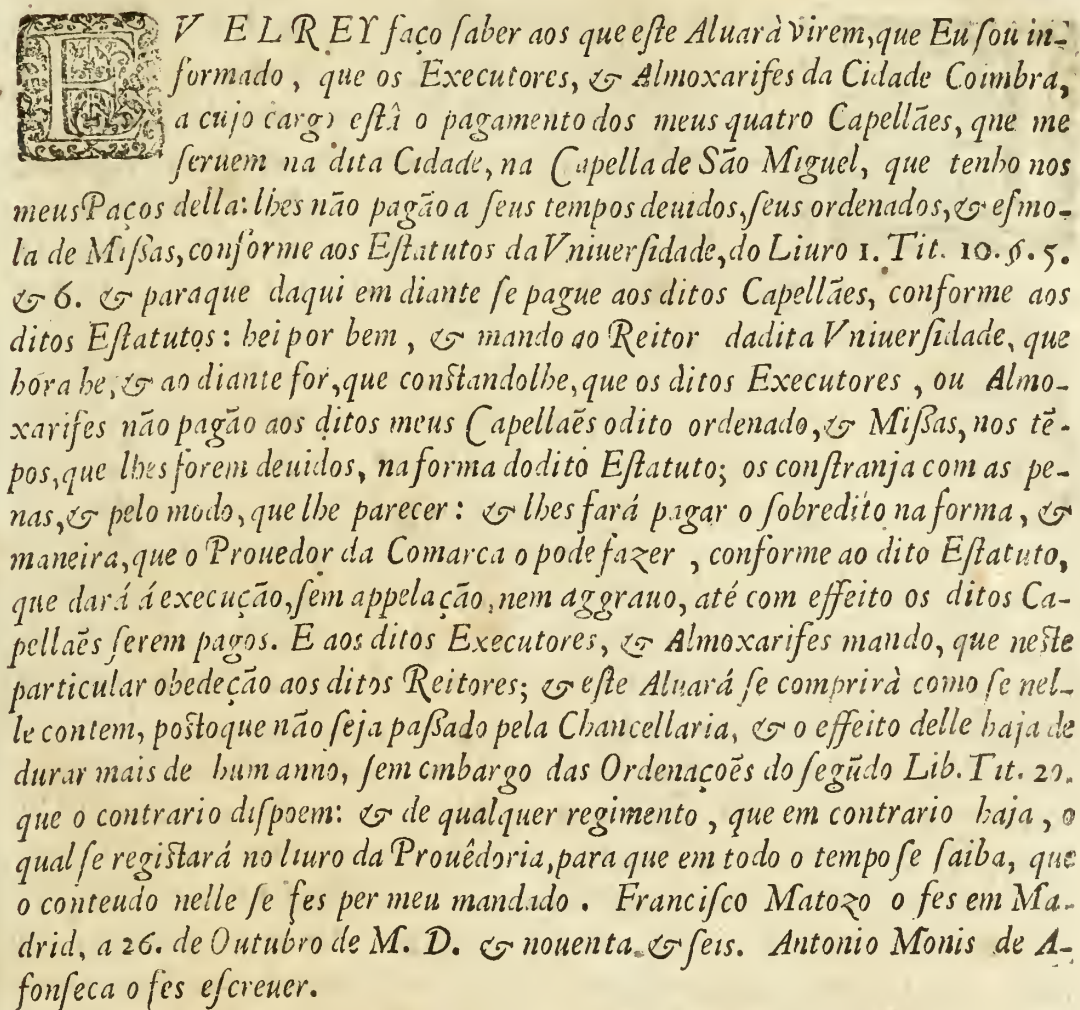 EV ELREY faço ſaber aos que eſte Aluarà virem, que Eu ſou in-
formado, que os Executores, & Almoxarifes da Cidade Coimbra,
a cujo cargo eſtâ o pagamento dos meus quatro Capellães, que me
ſeruem na dita Cidade, na Capella de São Miguel, que tenho nos
meus Paços della: lhes não pagão a ſeus tempos deuidos, ſeus ordenados, & eſmo-
la de Miſſas, conforme aos Eſtatutos da Vniuerſidade, do Liuro 1. Tit. 10. §. 5.
& 6. & paraque daqui em diante ſe pague aos ditos Capellães, conforme aos
ditos Eſtatutos: hei por bem, & mando ao Reitor dadita Vniuerſidade, que
hóra he, & ao diante for, que conſtandolhe, que os ditos Executores, ou Almo-
xarifes não pagão aos ditos meus Capellaẽs odito ordenado, & Miſſas, nos tẽ-
pos, que lhes forem deuidos, na forma dodito Eſtatuto; os conſtranja com as pe-
nas, & pelo modo, que lhe parecer: & lhes fará pagar o ſobredito na forma, &
maneira, que o Prouedor da Comarca o pode fazer, conforme ao dito Eſtatuto,
que dará á execução, ſem appelação, nem aggrauo, até com effeito os ditos Ca-
pellaẽs ſerem pagos. E aos ditos Executores, & Almoxarifes mando, que neſte
particular obedeção aos ditos Reitores; & eſte Aluará ſe comprirà como ſe nel-
le contem, poſtoque não ſeja paſſado pela Chancellaria, & o effeito delle haja de
durar mais de hum anno, ſem embargo das Ordenaçoẽs do ſegũdo Lib. Tit. 20.
que o contrario diſpoem: & de qualquer regimento, que em contrario haja, o
qual ſe regiſtará no liuro da Prouêdoria, para que em todo o tempo ſe ſaiba, que
o conteudo nelle ſe fes per meu mandado. Franciſco Matozo o fes em Ma-
drid, a 26. de Outubro de M. D. & nouenta & ſeis. Antonio Monis de A-
fonſeca o fes eſcreuer.